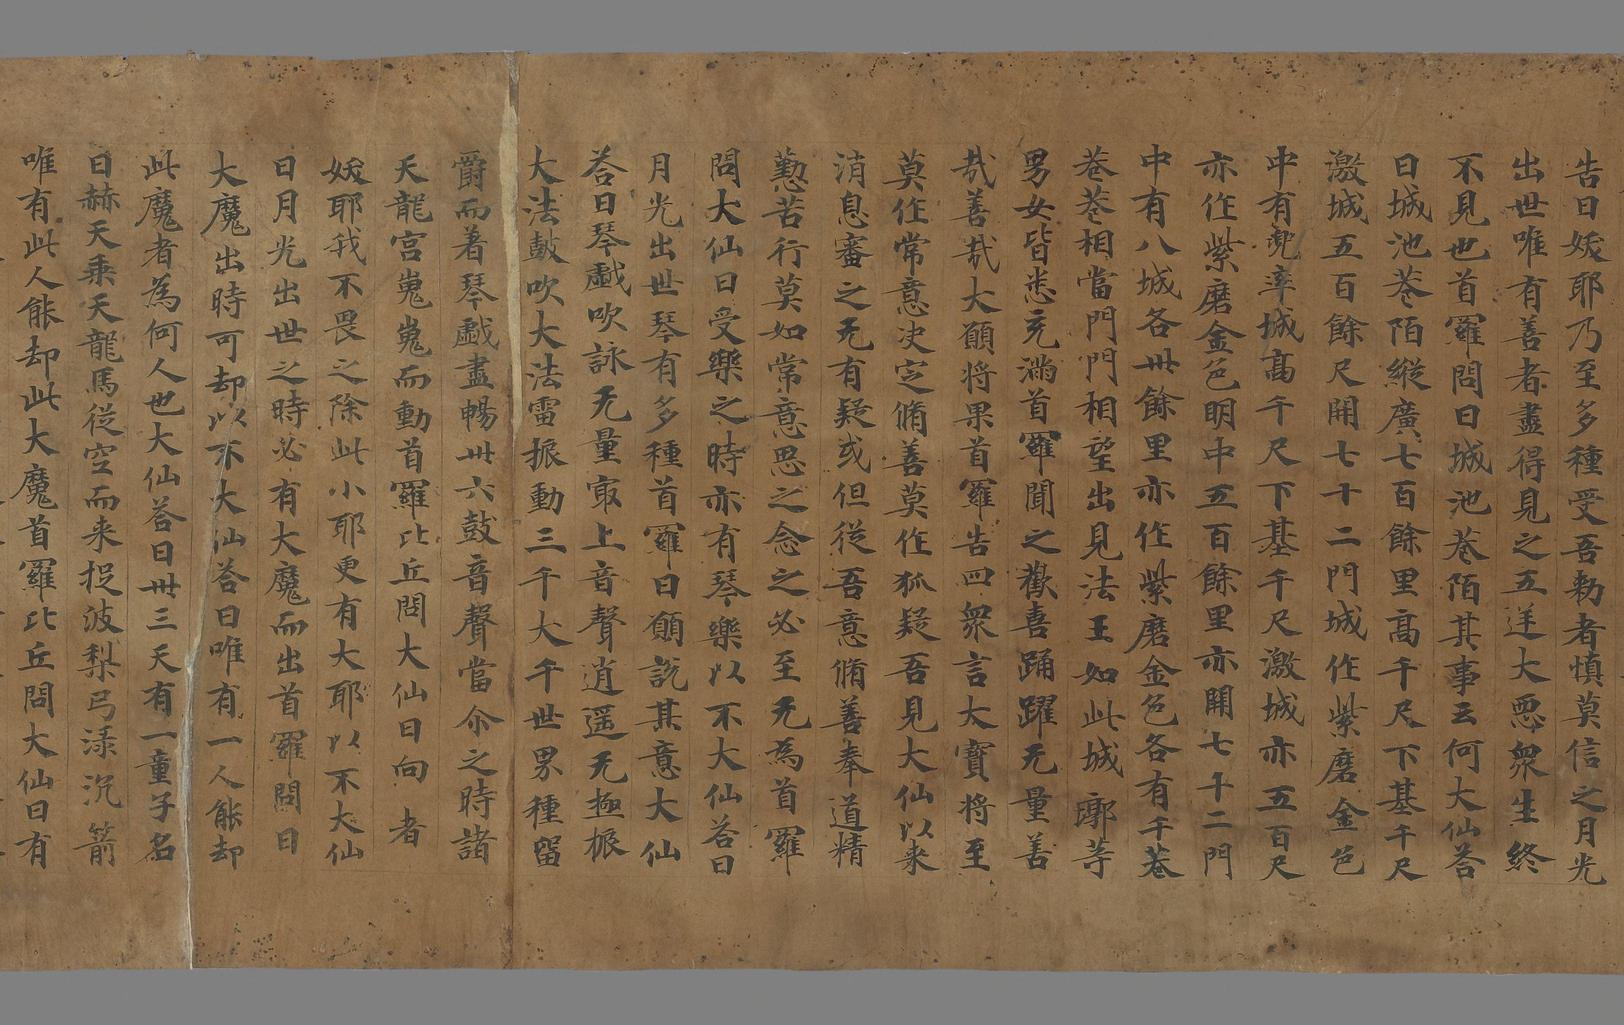 告曰妖耶乃至多種受吾勑者慎莫信之月光
出世唯有善者盡得見之五逆大惡衆生終
不見也首羅問曰城池巷陌其事云何大仙荅
曰城池巷陌縱廣七百餘里高千尺下基千尺
激城五百餘尺開七十二門城作紫磨金色
中有兜率城高千尺下基千尺激城亦五百尺
亦作紫磨金色明中五百餘里亦開七十二門
中有八城各卅餘里亦作紫磨金色各有千巷
巷巷相當門門相望出見法王如此城廓䓁
男女皆悉充滿首羅聞之歡喜踊躍无量善
㢤善㢤大願將果首羅告四衆言大寶將至
莫作常意決定脩善莫作狐疑吾見大仙以来
消息審之无有疑或但從吾意脩善奉道精
懃苦行莫如常意思之念之必至无為首羅
問大仙曰受樂之時亦有琴樂以不大仙荅曰
月光出世琴有多種首羅曰願說其意大仙
荅曰琴戱吹詠无量㝡上音聲逍遥无極振
大法鼓吹大法雷振動三千大千世界種留
爵而著琴戱盡暢卅六鼓音聲當尒之時諸
天龍宮嵬嵬而動首羅比丘問大仙曰向者
妖耶我不畏之除此小耶更有大耶以不大仙
曰月光出世之時必有大魔而出首羅問曰
大魔出時可却以不大仙荅曰唯有一人能却
此魔者為何人也大仙荅曰卅三天有一童子名
曰赫天乘天龍馬從空而来捉波梨弓渌沉箭
唯有此人能却此大魔首羅比丘問大仙曰有